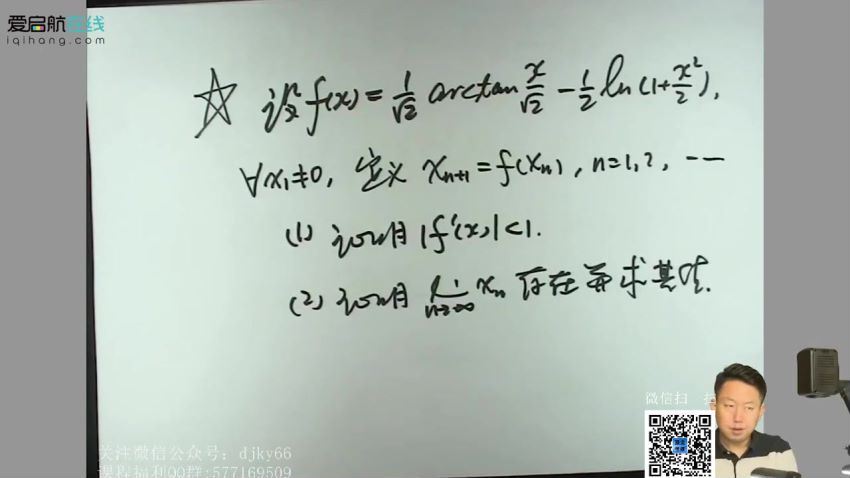 爱启航在线
iqihang.com
☆ 设f(x)=1/√2 arctan x/√2 - 1/2 ln(1+x²/2),
∀x₁≠0, 定义 xₙ₊₁=f(xₙ), n=1,2, ...
(1) 证明 |f'(x)|<1.
(2) 证明 lim n→∞ xₙ 存在并求其值.
微信扫 扫
关注微信公众号：djky66
课程福利QQ群:577169509